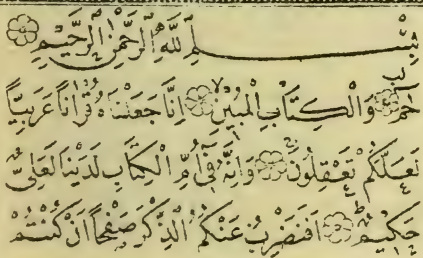 بِسْمِ اللَّهِ الرَّحْمَٰنِ الرَّحِيمِ
حم وَالْكِتَابِ الْمُبِينِ إِنَّا جَعَلْنَاهُ قُرْآنًا عَرَبِيًّا
لَعَلَّكُمْ تَعْقِلُونَ وَإِنَّهُ فِي أُمِّ الْكِتَابِ لَدَيْنَا لَعَلِيٌّ
حَكِيمٌ أَفَنَضْرِبُ عَنْكُمُ الذِّكْرَ صَفْحًا أَنْ كُنْتُمْ